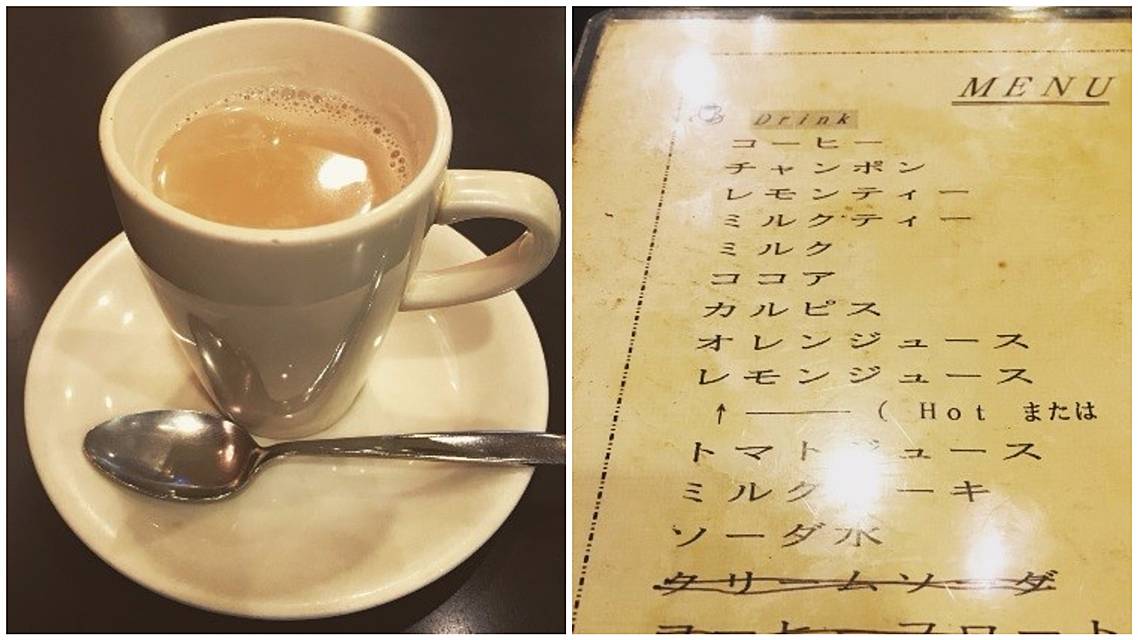 MENU
Drink
コーヒー
チャンポン
レモンティー
ミルクティー
ミルク
ココア
カルピス
オレンジュース
レモンジュース
↑ ——— ( Hot または
トマトジュース
ミルク ーキ
ソーダ水
クリームソーダ
コーヒーフロート